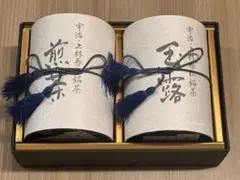 宇治 上林春松銘茶
煎茶
宇治 上林春松銘茶
玉露